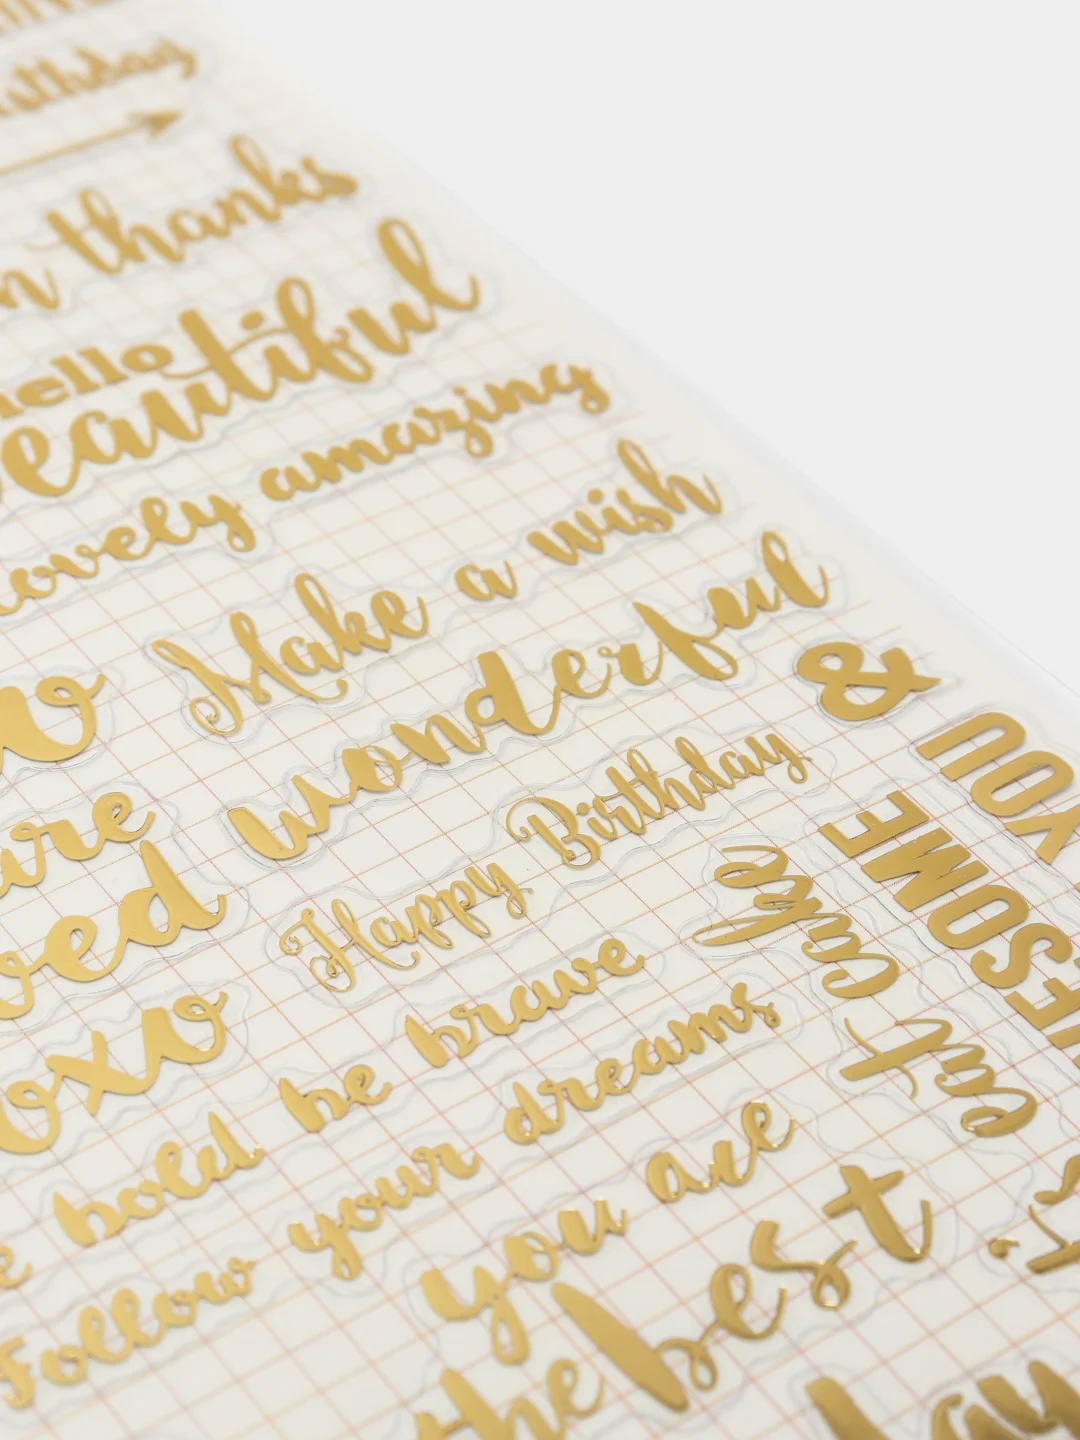 thanks
hello
beautiful
lovely amazing
Make a wish
wonderful
&
YOU
Happy Birthday
AWESOME
eat cake
xoxo
be bold be brave
Follow your dreams
you are
the best